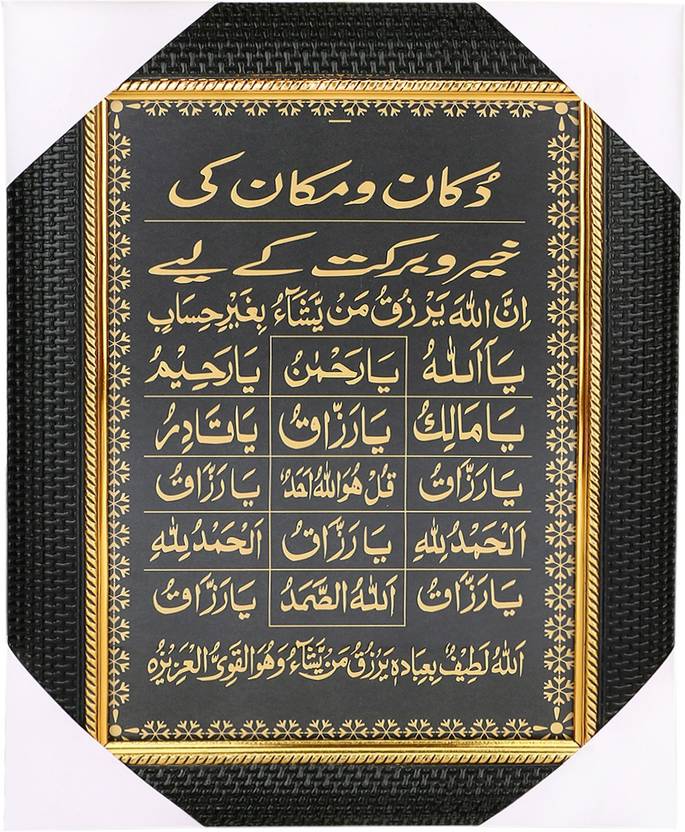 دُکان و مکان کی
خیر و برکت کے لیے
اِنَّ اللهَ يَرْزُقُ مَنْ يَّشَآءُ بِغَيْرِ حِسَابٍ
يَآ اَللّٰهُ يَارَحْمٰنُ يَارَحِيْمُ
يَامَالِكُ يَارَزَّاقُ يَاقَادِرُ
يَارَزَّاقُ قُلْ هُوَ اللهُ اَحَدٌ يَارَزَّاقُ
اَلْحَمْدُ لِلّٰهِ يَارَزَّاقُ اَلْحَمْدُ لِلّٰهِ
يَارَزَّاقُ اَللّٰهُ الصَّمَدُ يَارَزَّاقُ
اَللهُ لَطِيْفٌۢ بِعِبَادِهٖ يَرْزُقُ مَنْ يَّشَآءُ وَهُوَ الْقَوِيُّ الْعَزِيْزُ